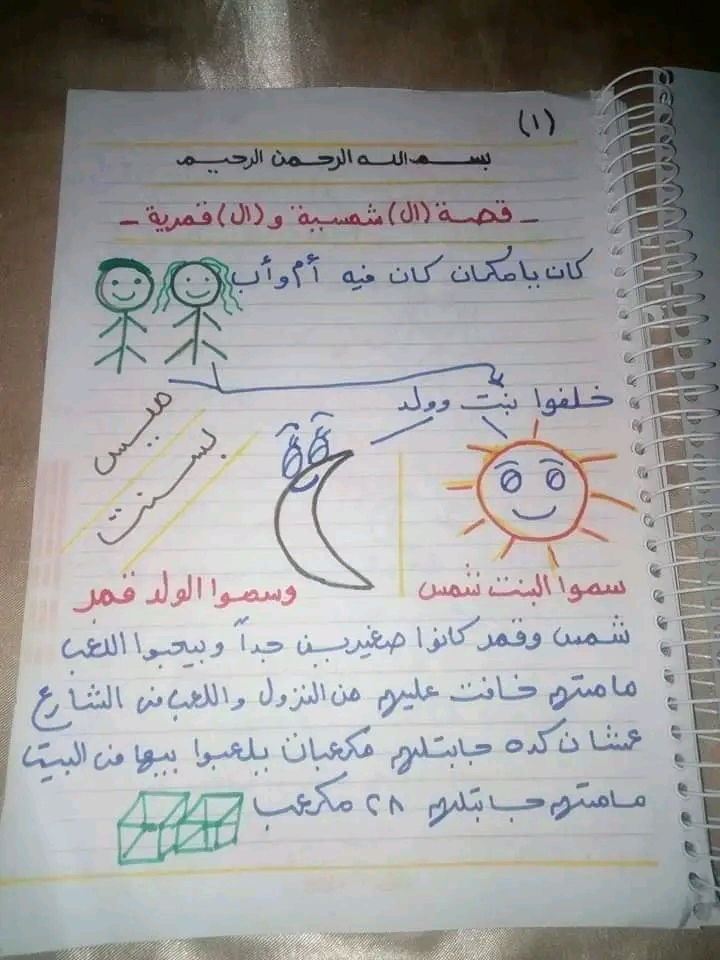 (١)
بسم الله الرحمن الرحيم
- قصة (ال) شمسية و (ال) قمرية -
كان ياما كان كان فيه أم وأب
خلفوا بنت وولد
ميس
بسنت
سموا البنت شمس
وسموا الولد قمر
شمس وقمر كانوا صغيرين جداً وبيحبوا اللعب
مامتهم خافت عليهم من النزول واللعب فى الشارع
عشان كده جابتلهم مكعبات يلعبوا بيها فى البيت
مامتهم جابتلهم ٢٨ مكعب